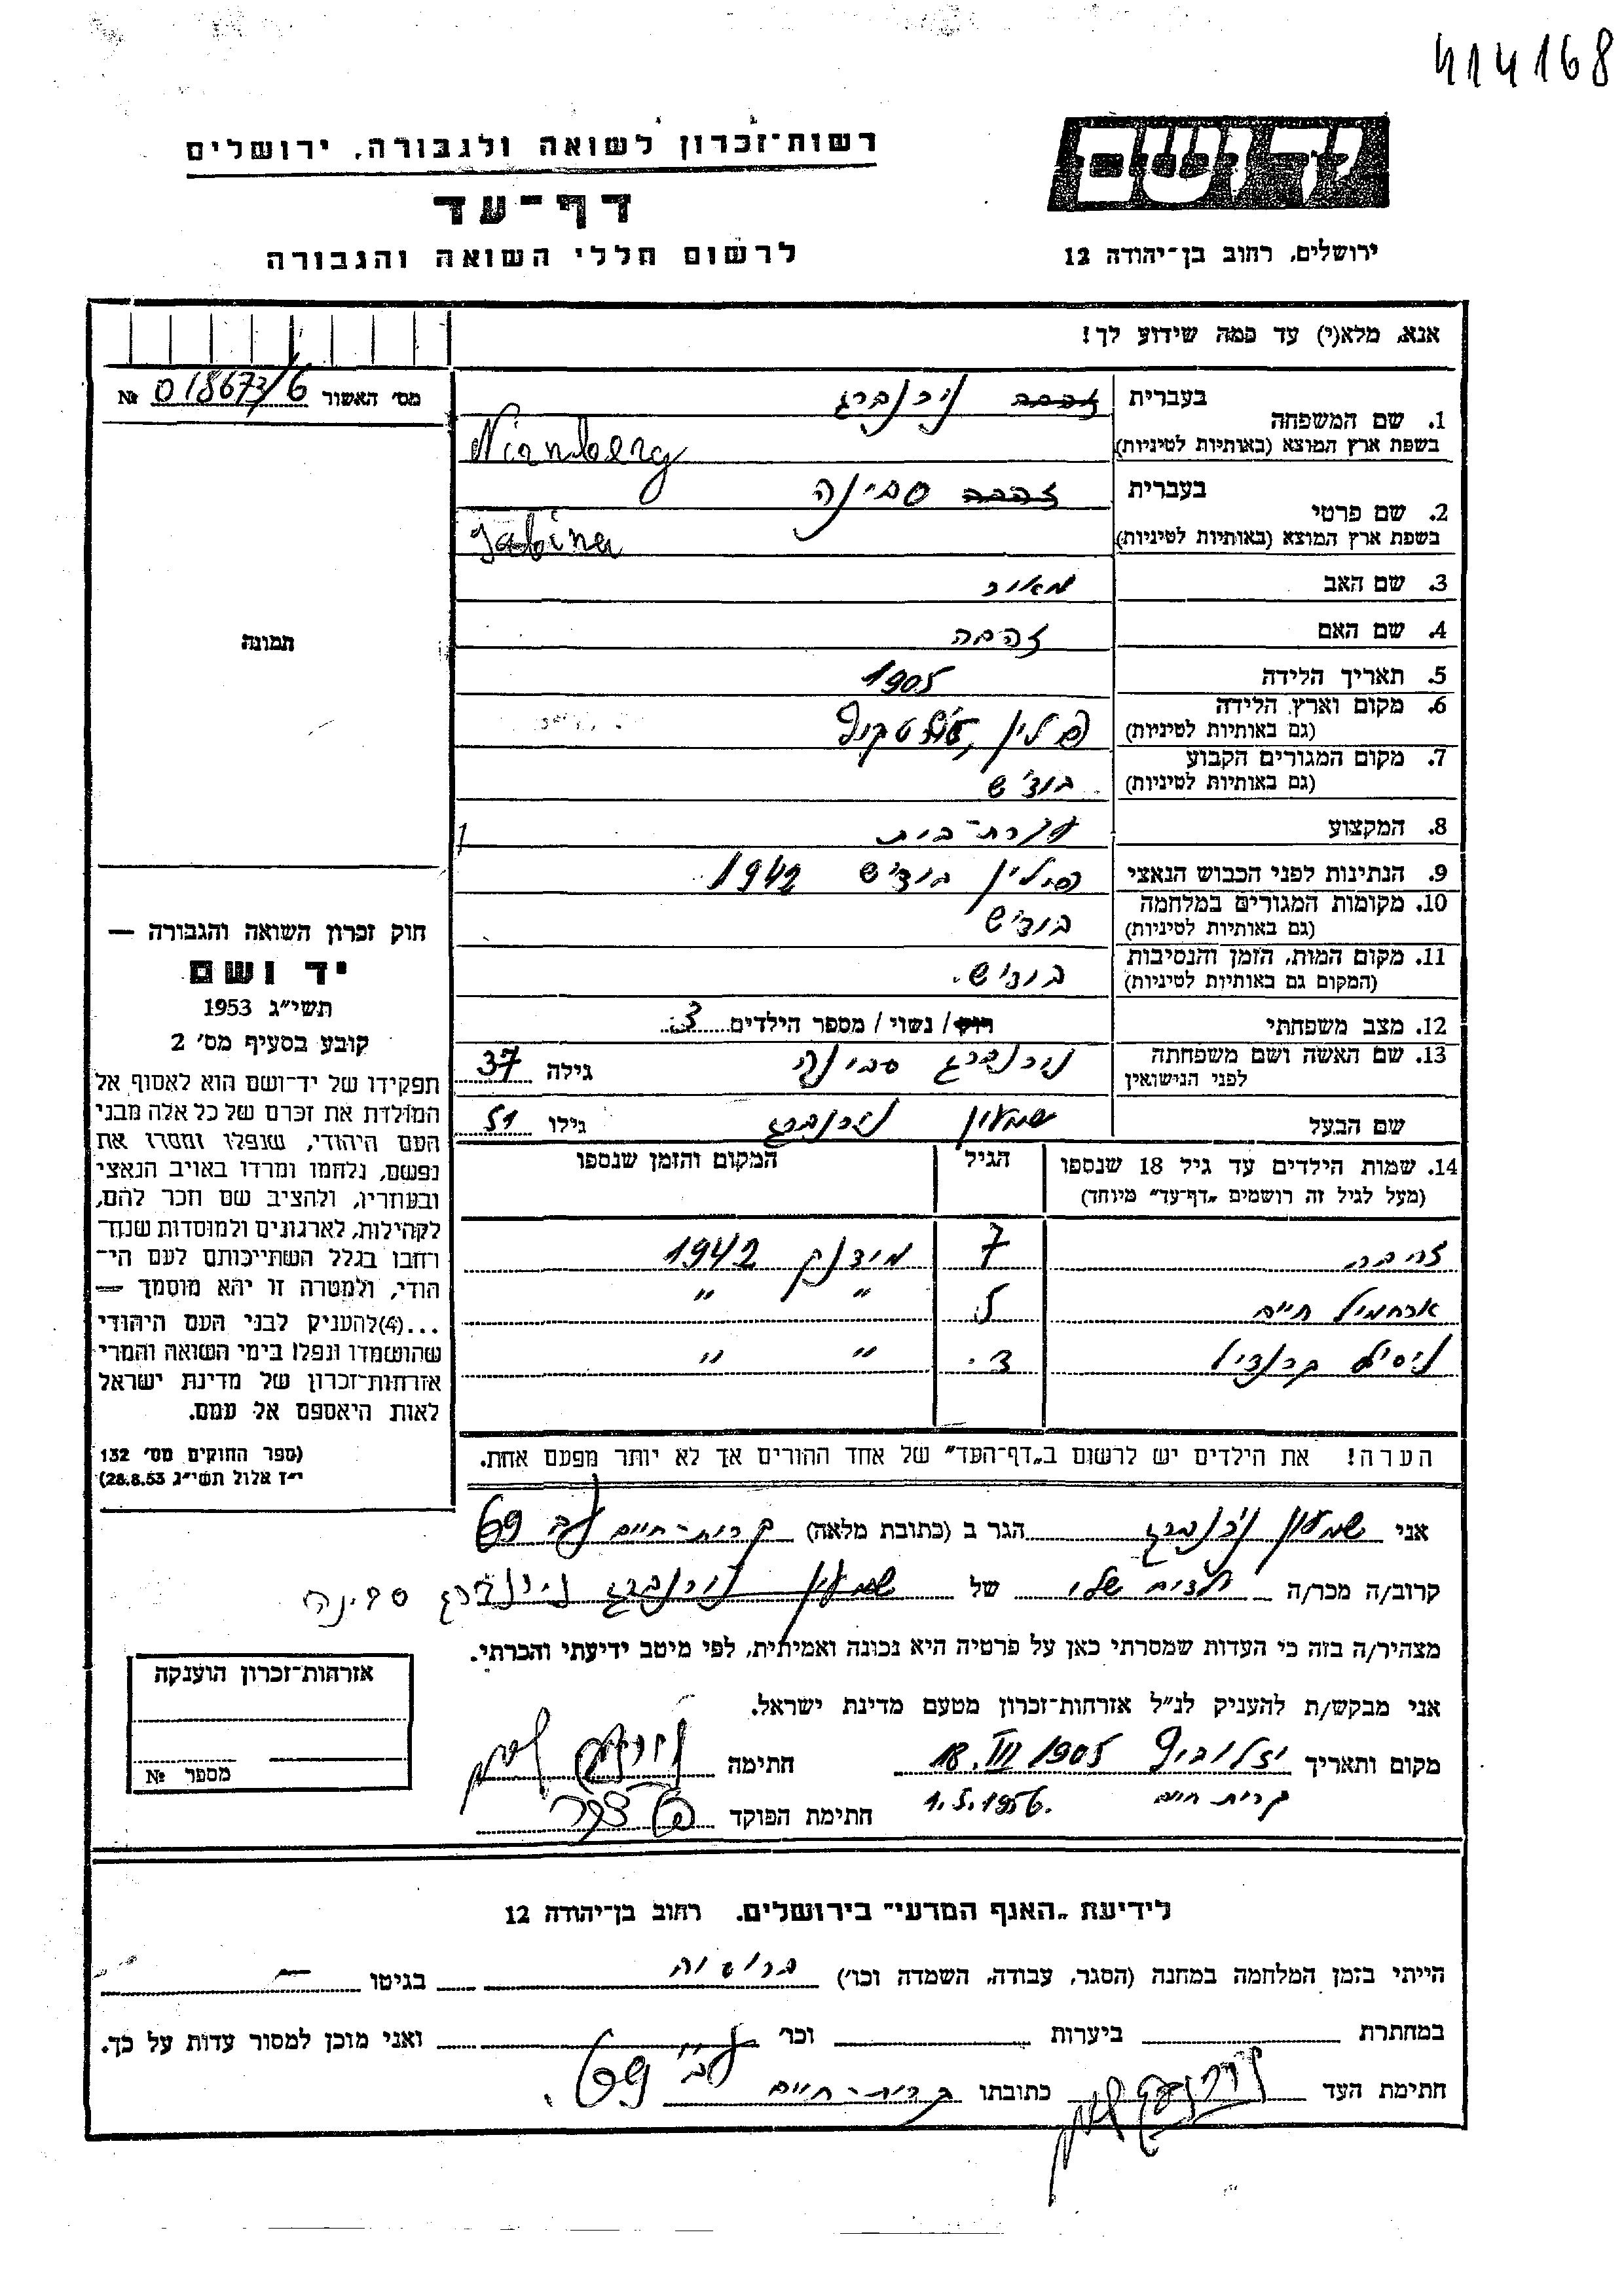 414168
יד ושם
רשות־זכרון לשואה ולגבורה, ירושלים
דף־עד
לרשום חללי השואה והגבורה
ירושלים, רחוב בן־יהודה 12
אנא, מלא(י) עד כמה שידוע לך!
מס׳ האשור 018673/6 №
תמונה
חוק זכרון השואה והגבורה —
יד ושם
תשי״ג 1953
קובע בסעיף מס׳ 2
תפקידו של יד־ושם הוא לאסוף אל
המולדת את זכרם של כל אלה מבני
העם היהודי, שנפלו ומסרו את
נפשם, נלחמו ומרדו באויב הנאצי
ובעוזריו, ולהציב שם וזכר להם,
לקהילות, לארגונים ולמוסדות שנח־
רחבו בגלל השתייכותם לעם הי־
הודי, ולמטרה זו יהא מוסמך —
...(4)להעניק לבני העם היהודי
שהושמדו ונפלו בימי השואה והמרי
אזרחות־זכרון של מדינת ישראל
לאות היאספם אל עמם.
(ספר החוקים מס׳ 132
י״ז אלול תשי״ג 28.8.53)
1. שם המשפחה
בעברית זהבה נירנברג
בשפת ארץ המוצא (באותיות לטיניות) Nirnberg
2. שם פרטי
בעברית זהבה סבינה
בשפת ארץ המוצא (באותיות לטיניות) Sabina
3. שם האב מאיר
4. שם האם זהבה
5. תאריך הלידה 1905
6. מקום וארץ הלידה
(גם באותיות לטיניות) פולין
7. מקום המגורים הקבוע
(גם באותיות לטיניות)
8. המקצוע עקרת־בית
9. הנתינות לפני הכבוש הנאצי פולין 1942
10. מקומות המגורים במלחמה
(גם באותיות לטיניות)
11. מקום המות, הזמן והנסיבות
(המקום גם באותיות לטיניות)
12. מצב משפחתי רווק / נשוי / מספר הילדים 3
13. שם האשה ושם משפחתה
לפני הנישואין נירנברג סבינה גילה 37
שם הבעל שמעון נירנברג גילו 51
14. שמות הילדים עד גיל 18 שנספו הגיל המקום והזמן שנספו
(מעל לגיל זה רושמים „דף־עד״ מיוחד)
זהבה 7 מידנק 1942
ירחמיאל חיים 5 ״ ״
3. ״ ״
הערה! את הילדים יש לרשום ב„דף־העד״ של אחד ההורים אך לא יותר מפעם אחת.
אני שמעון נירנברג הגר ב (כתובת מלאה) קרית־חיים 69
קרוב/ה מכר/ה של שמעון נירנברג נירנברג סבינה
מצהיר/ה בזה כי העדות שמסרתי כאן על פרטיה היא נכונה ואמיתית, לפי מיטב ידיעתי והכרתי.
אני מבקש/ת להעניק לנ״ל אזרחות־זכרון מטעם מדינת ישראל.
מקום ותאריך 18. VII 1905 חתימה
קרית חיים 1.5.1956. חתימת הפוקד
אזרחות־זכרון הוענקה
מספר №
לידיעת „האגף המדעי״ בירושלים. רחוב בן־יהודה 12
הייתי בזמן המלחמה במחנה (הסגר, עבודה, השמדה וכו׳) ברוסיה בגיטו —
במחתרת ביערות וכו׳ ואני מוכן למסור עדות על כך.
חתימת העד כתובתו קרית־חיים 69.